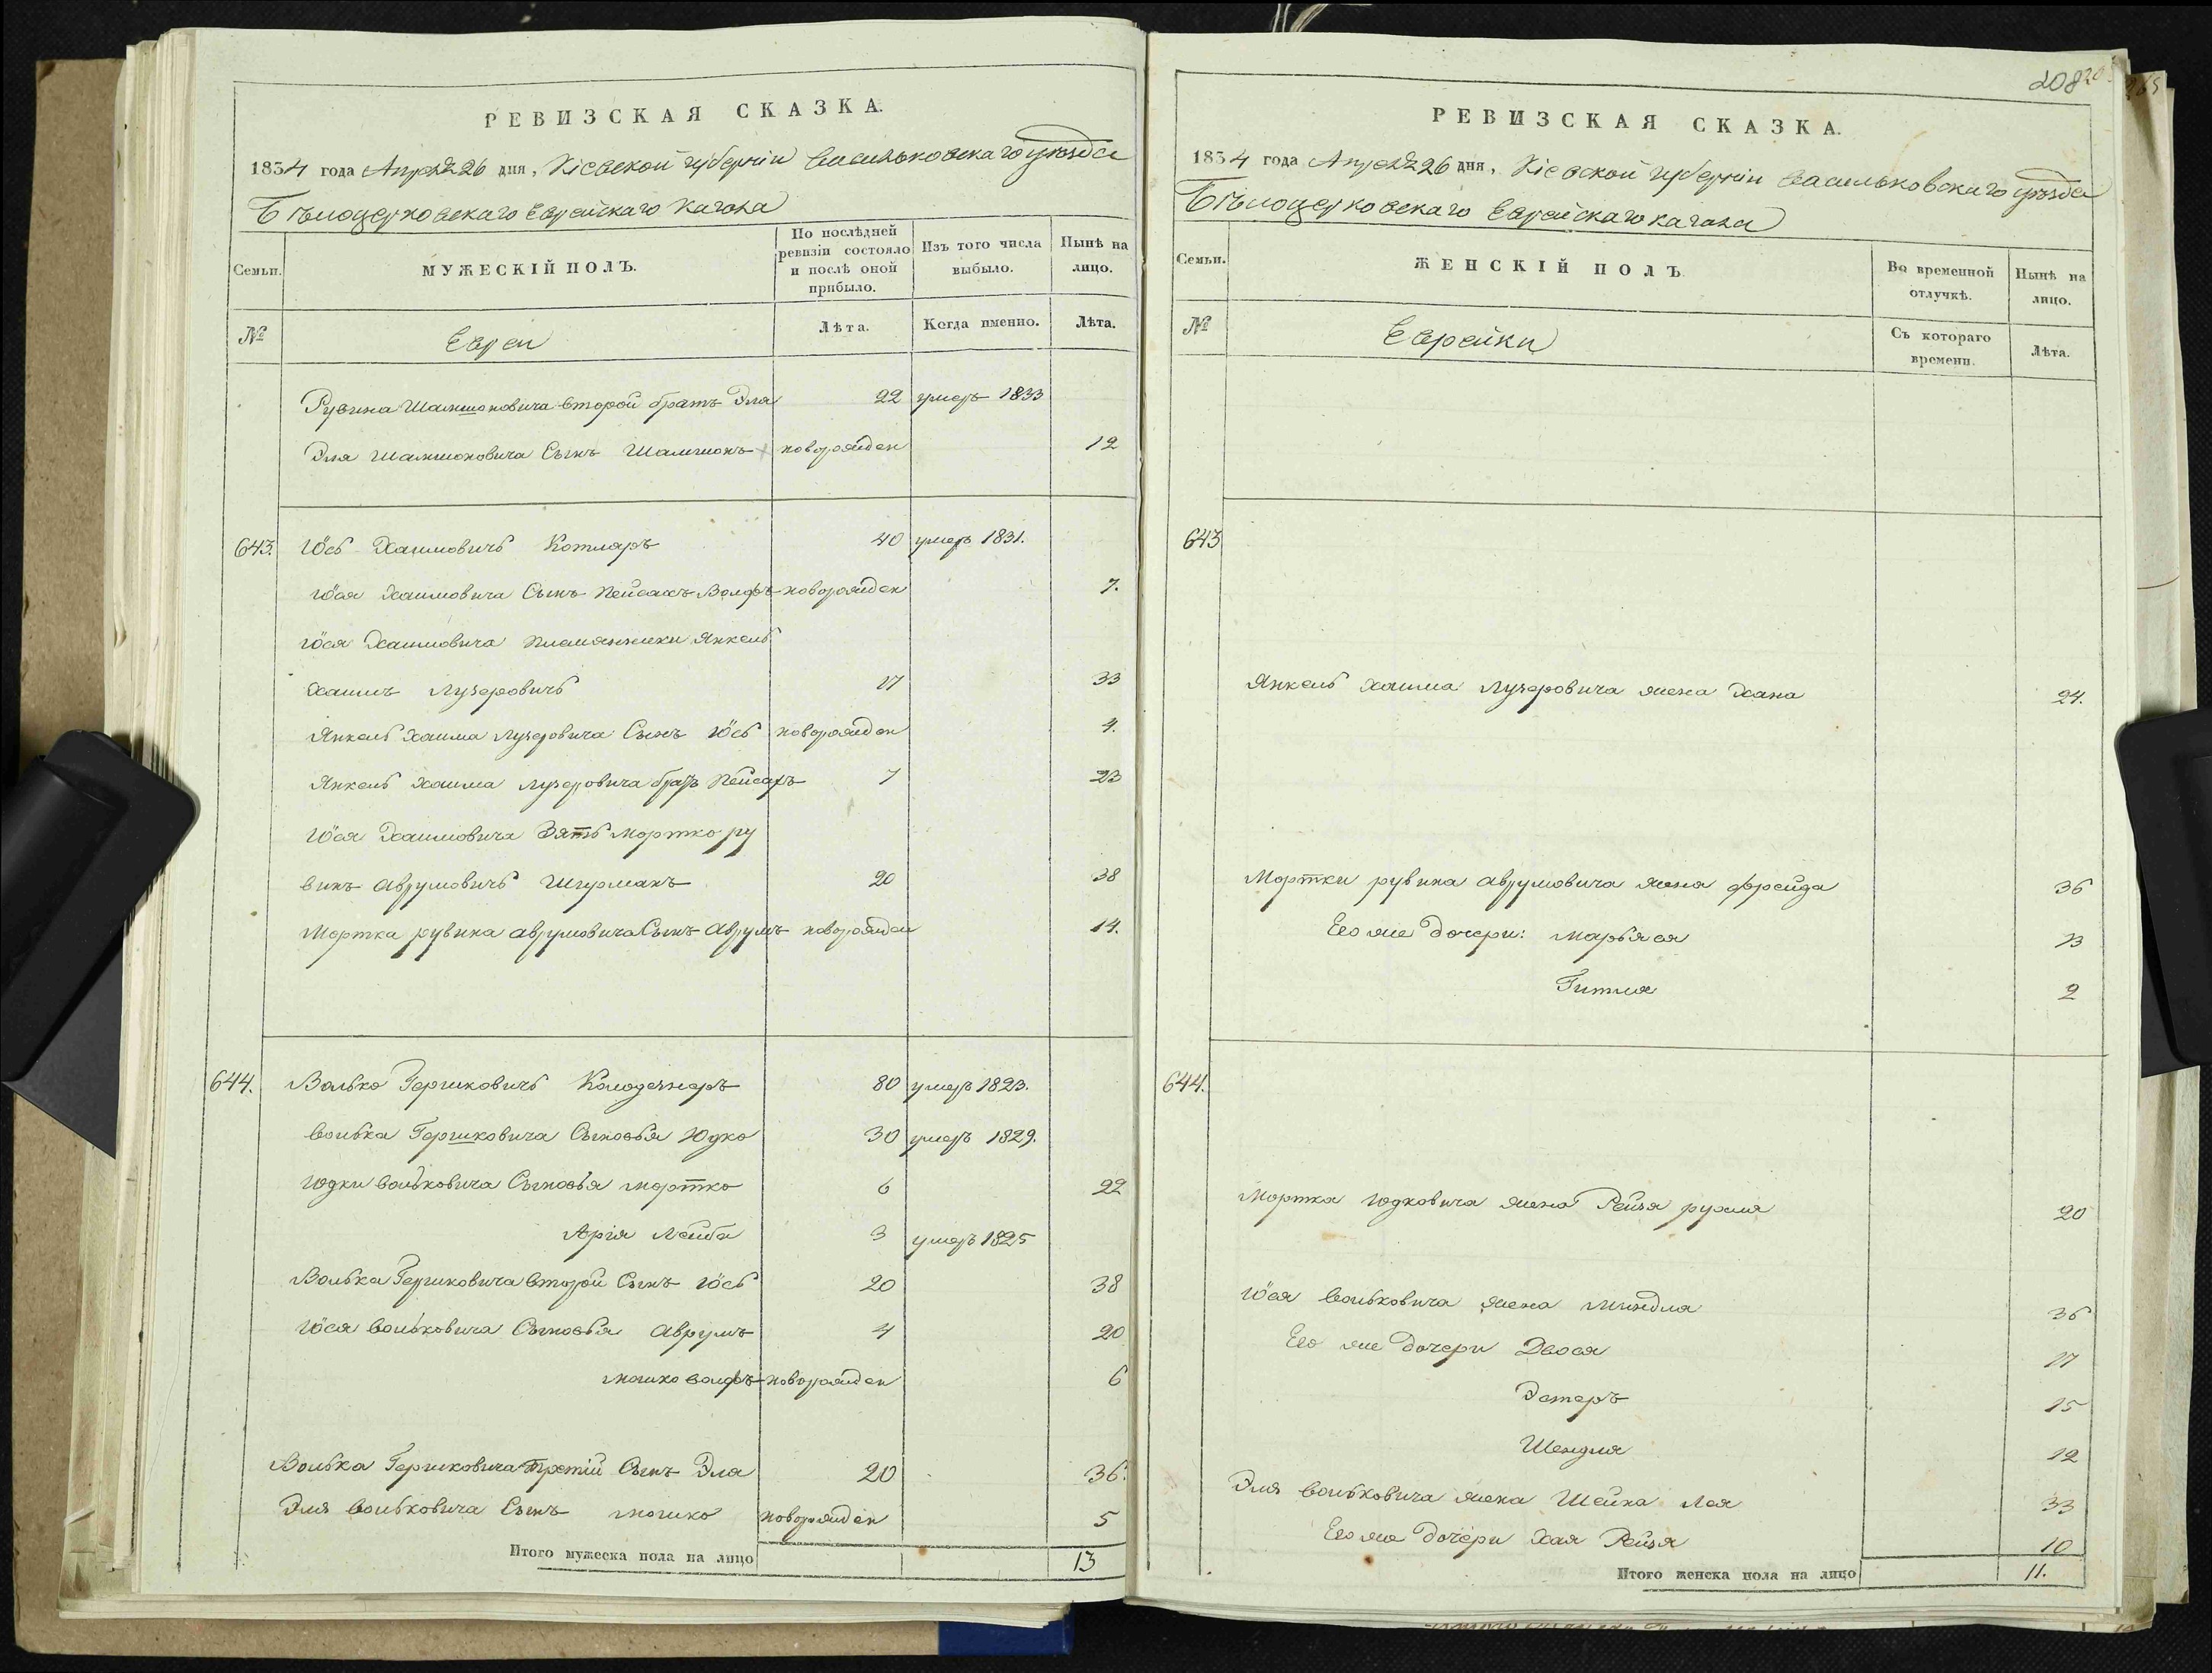 РЕВИЗСКАЯ СКАЗКА.
1834 года Апреля 26 дня, Кіевской губерніи Васильковскаго уезда
Бѣлоцерковскаго Еврейскаго Кагала
Семьи.
МУЖЕСКІЙ ПОЛЪ.
По послѣдней ревизіи состояло и послѣ оной прибыло.
Изъ того числа выбыло.
Нынѣ на лицо.
№
Евреи
Лѣта.
Когда именно.
Лѣта.
Рувина Шамшоновича второй братъ Эля 22 умеръ 1833
Эля Шамшоновича Сынъ Шамшонъ новорожден 12
643. Іось Хаимовичь Котляръ 40 умеръ 1831.
Іося Хаимовича Сынъ Пейсахъ Волфъ новорожден 7.
Іося Хаимовича племянники Янкель
Хаимъ Лузеровичь 17 33
Янкель Хаима Лузеровича Сынъ Іось новорожден 4.
Янкель Хаима Лузеровича братъ Пейсахъ 7 23
Іося Хаимовича Зять Мортко ру
винъ Аврумовичь Шурманъ 20 38
Мортка рувина аврумовича Сынъ Аврумъ новорожден 14.
644. Волько Гершковичь Колодезнеръ 80 умеръ 1823.
Волька Гершковича Сыновья Юдко 30 умеръ 1829.
Юдки Вольковича Сыновья Мортко 6 22
Арія Лейба 3 умеръ 1825
Волька Гершковича второй Сынъ Іось 20 38
Іося Вольковича Сыновья Аврумъ 4 20
Мошко Волфъ новорожден 6
Волька Гершковича третій Сынъ Эля 20 36.
Эля Вольковича Сынъ Мошко новорожден 5
Итого мужеска пола на лицо 13
208
РЕВИЗСКАЯ СКАЗКА.
1834 года Апреля 26 дня, Кіевской губерніи Васильковскаго уезда
Бѣлоцерковскаго Еврейскаго кагала
Семьи.
ЖЕНСКІЙ ПОЛЪ
Во временной отлучкѣ.
Нынѣ на лицо.
№
Еврейки
Съ котораго времени.
Лѣта.
643
Янкель Хаима Лузеровича жена Хана 24.
Мортки рувина аврумовича жена Фрейда 36
Его же дочери: Марьяся 13
Гитля 2
644.
Мортка Юдковича жена Рейзя рухля 20
Іося Вольковича жена Миндля 36
Его же дочери Двося 17
Эстеръ 15
Шендля 12
Эля Вольковича жена Шейна Лея 33
Его же дочери Хая Рейзя 10
Итого женска пола на лицо 11.